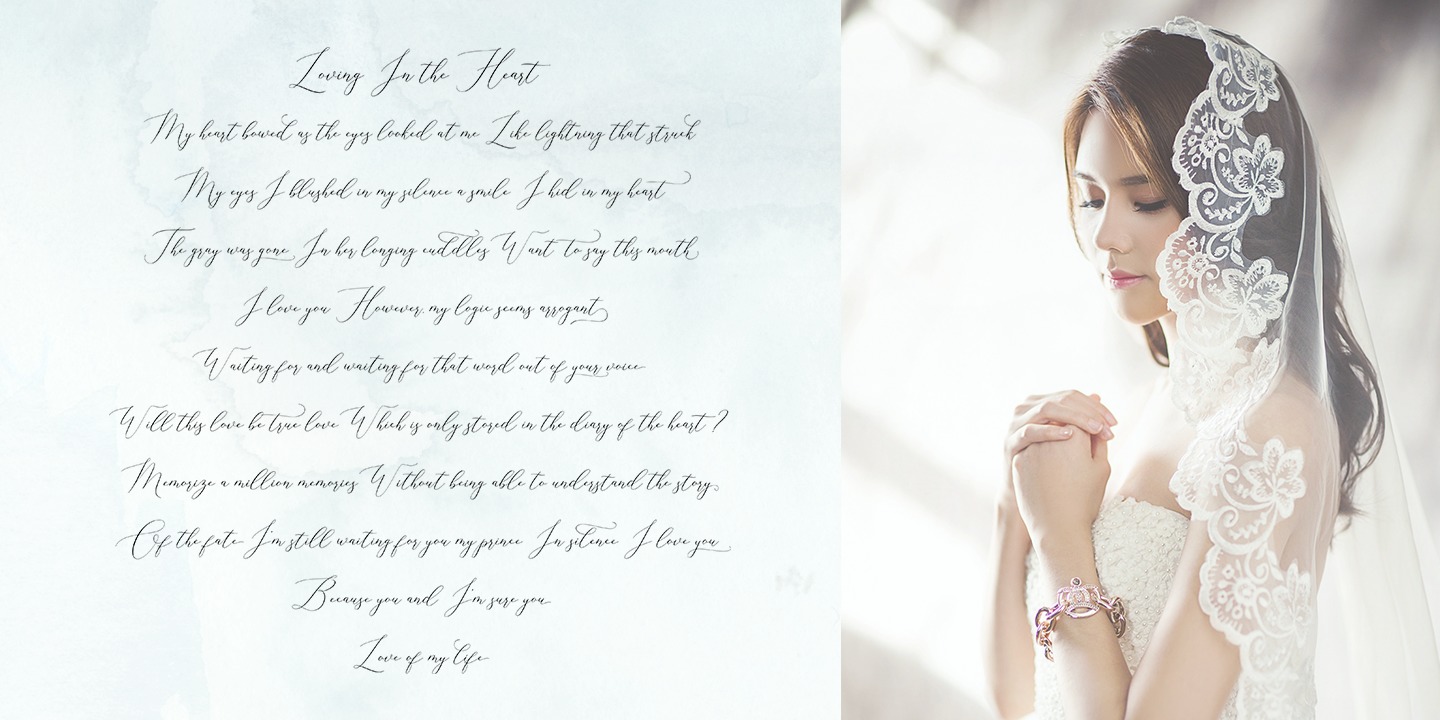 Loving In the Heart
My heart bowed as the eyes looked at me Like lightning that struck
My eyes I blushed in my silence a smile I hid in my heart
The gray was gone In her longing cuddles Want to say this mouth
I love you However, my logic seems arrogant
Waiting for and waiting for that word out of your voice
Will this love be true love Which is only stored in the diary of the heart ?
Memorize a million memories Without being able to understand the story
Of the fate I'm still waiting for you my prince In silence I love you
Because you and I'm sure you
Love of my life